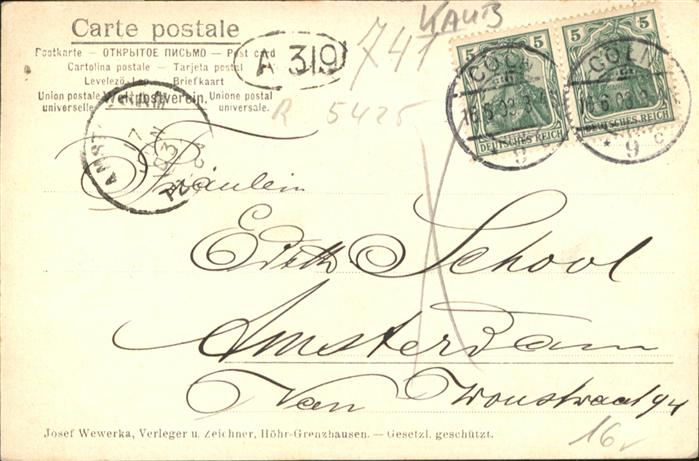 Carte postale
Postkarte — ОТКРЫТОЕ ПИСЬМО — Post card
Cartolina postale — Tarjeta postal
Levelező-Lap — Briefkaart
Union postale universelle. Weltpostverein. Unione postale universale.
A 319
741
KAUB
R 5425
5 5
DEUTSCHES REICH
5 5
DEUTSCHES REICH
CÖLN
16.6.03.
* 9 c
CÖLN
16.6.03.
* 9 c
Fräulein
Edith School
Amsterdam
Van 94
16
Josef Wewerka, Verleger u. Zeichner, Höhr-Grenzhausen. — Gesetzl. geschützt.